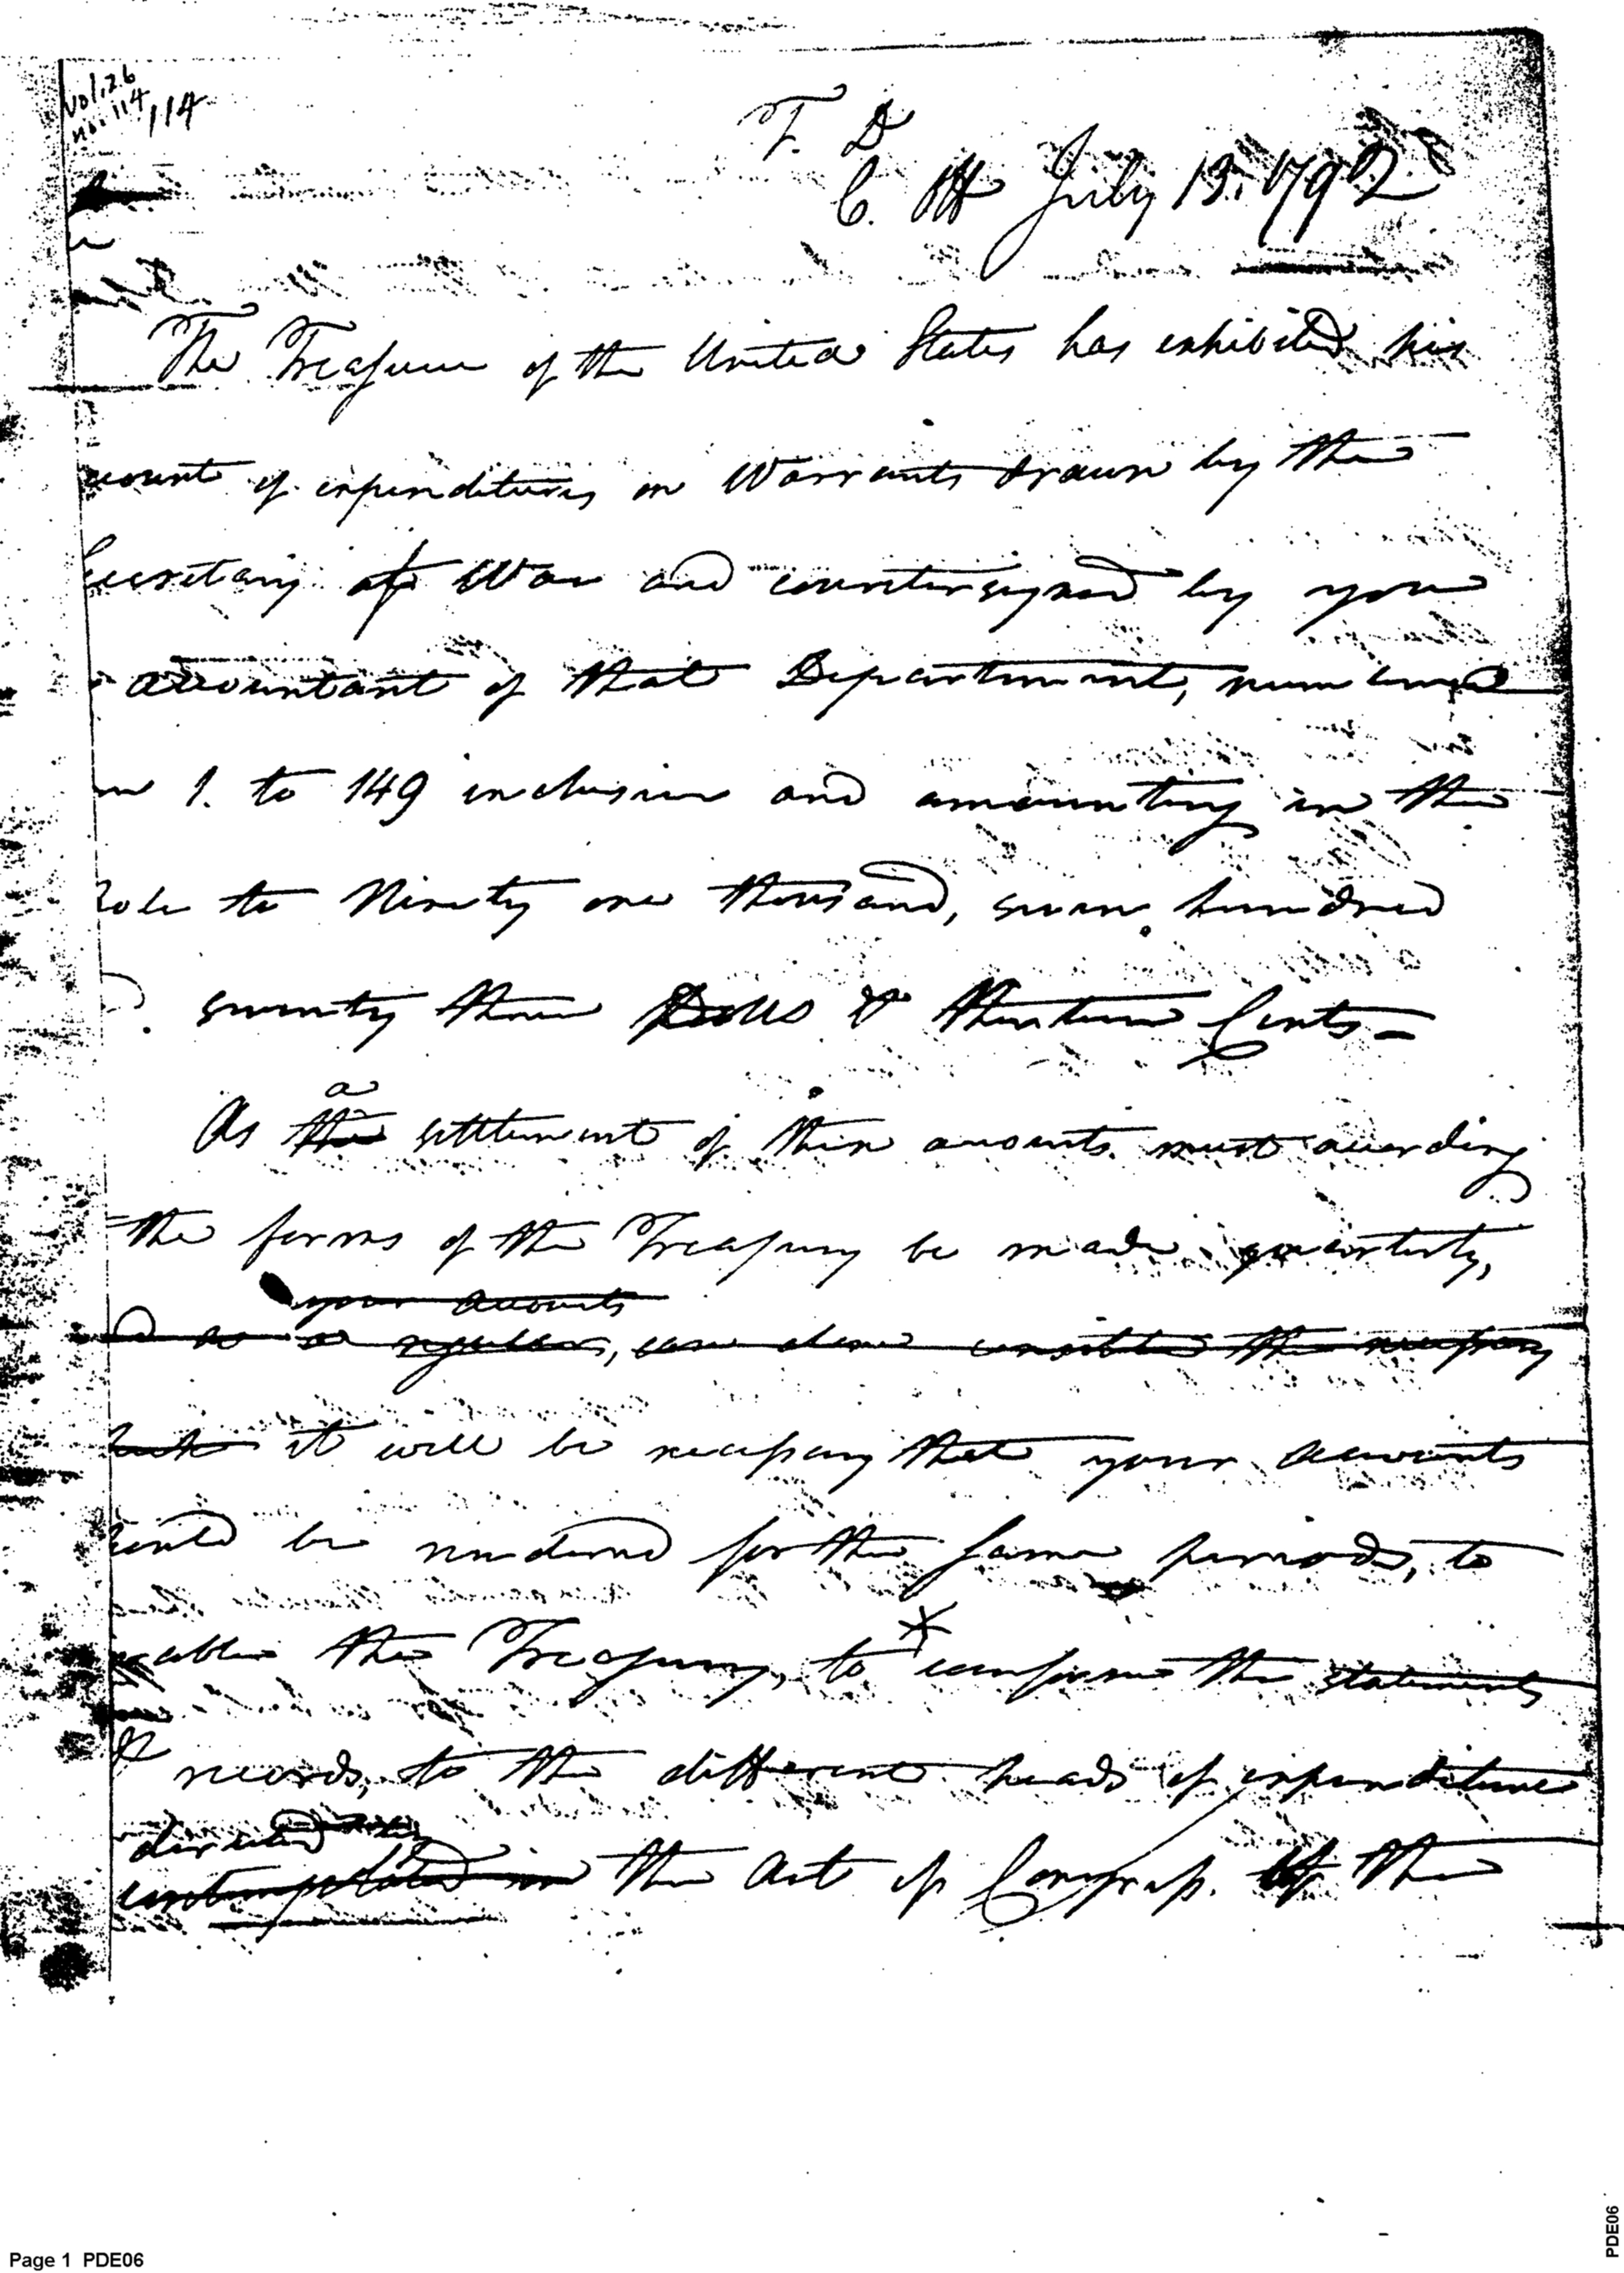 vol. 26
no. 114 114
T. D
C. Off July 13. 1792
The Treasurer of the United States has exhibited his
ccount of expenditures on Warrants drawn by the
Secretary of War and countersigned by you
accountant of that Department, numbered
m 1. to 149 inclusive and amounting in the
hole to Ninety one thousand, seven hundred
d. seventy three Dolls & thirteen Cents =
a
As the settlement of these accounts must according
the forms of the Treasury be made quarterly,
your accounts
d as a regular, can alone constitute the necessary
it will be necessary that your accounts
hould be rendered for the same periods, to
nable the Treasury, to conform the statements
& records, to the different heads of expenditure
directed by
contemplated in the Act of Congress. Of the
Page 1 PDE06
PDE06